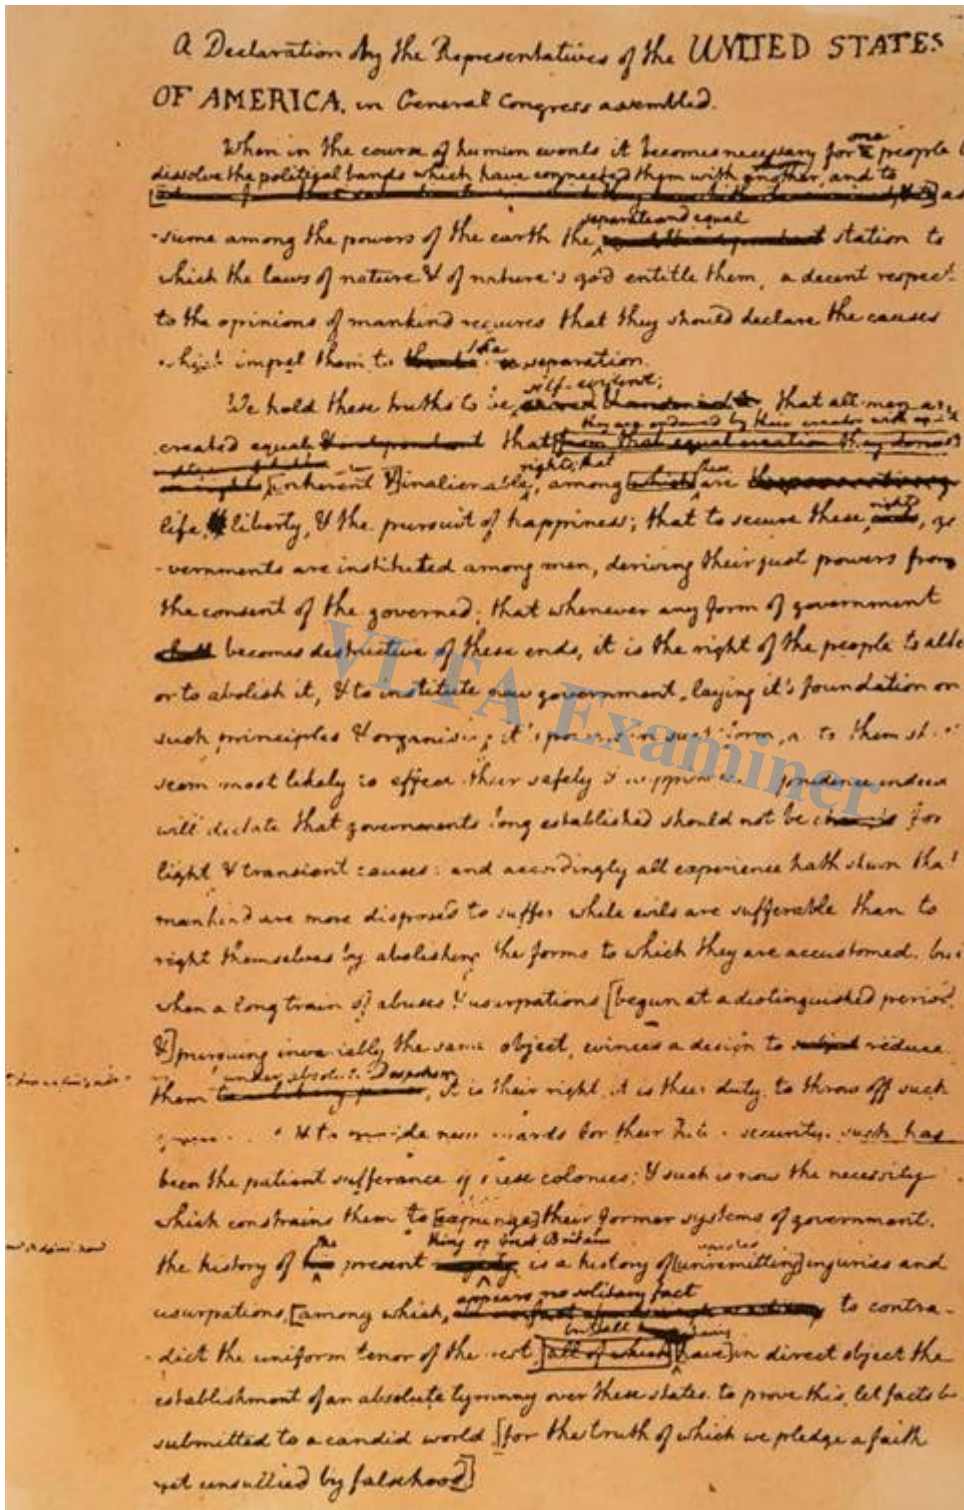 A Declaration by the Representatives of the UNITED STATES
OF AMERICA, in General Congress assembled.
When in the course of human events it becomes necessary for one people
dissolve the political bands which have connected them with another, and to
as
separate and equal
-sume among the powers of the earth the station to
which the laws of nature & of nature's god entitle them, a decent respect
to the opinions of mankind requires that they should declare the causes
which impel them to the separation.
self-evident;
We hold these truths to be that all men are
they are endowed by their creator with
created equal & independent that from that equal creation they
rights; that these
[inherent &] inalienable, among which are
rights
life, liberty, & the pursuit of happiness; that to secure these, go
-vernments are instituted among men, deriving their just powers from
the consent of the governed; that whenever any form of government
shall becomes destructive of these ends, it is the right of the people to alter
or to abolish it, & to institute new government, laying it's foundation on
such principles & organising it's powers in such form, as to them shall
seem most likely to effect their safety & happiness. prudence indeed
will dictate that governments long established should not be changed for
light & transient causes: and accordingly all experience hath shewn that
mankind are more disposed to suffer while evils are sufferable than to
right themselves by abolishing the forms to which they are accustomed. but
when a long train of abuses & usurpations [begun at a distinguished period
&] pursuing invariably the same object, evinces a design to subject reduce
under absolute Despotism
them, it is their right, it is their duty, to throw off such
& to provide new guards for their security. such has
been the patient sufferance of these colonies; & such is now the necessity
which constrains them to [expunge] their former systems of government.
the king of Great Britain
the history of present is a history of [unremitting] injuries and
appears no solitary fact
usurpations, [among which, to contra-
but all
-dict the uniform tenor of the rest, [all of which] [have] in direct object the
establishment of an absolute tyranny over these states. to prove this, let facts be
submitted to a candid world [for the truth of which we pledge a faith
yet unsullied by falsehood]
VLTA Examiner